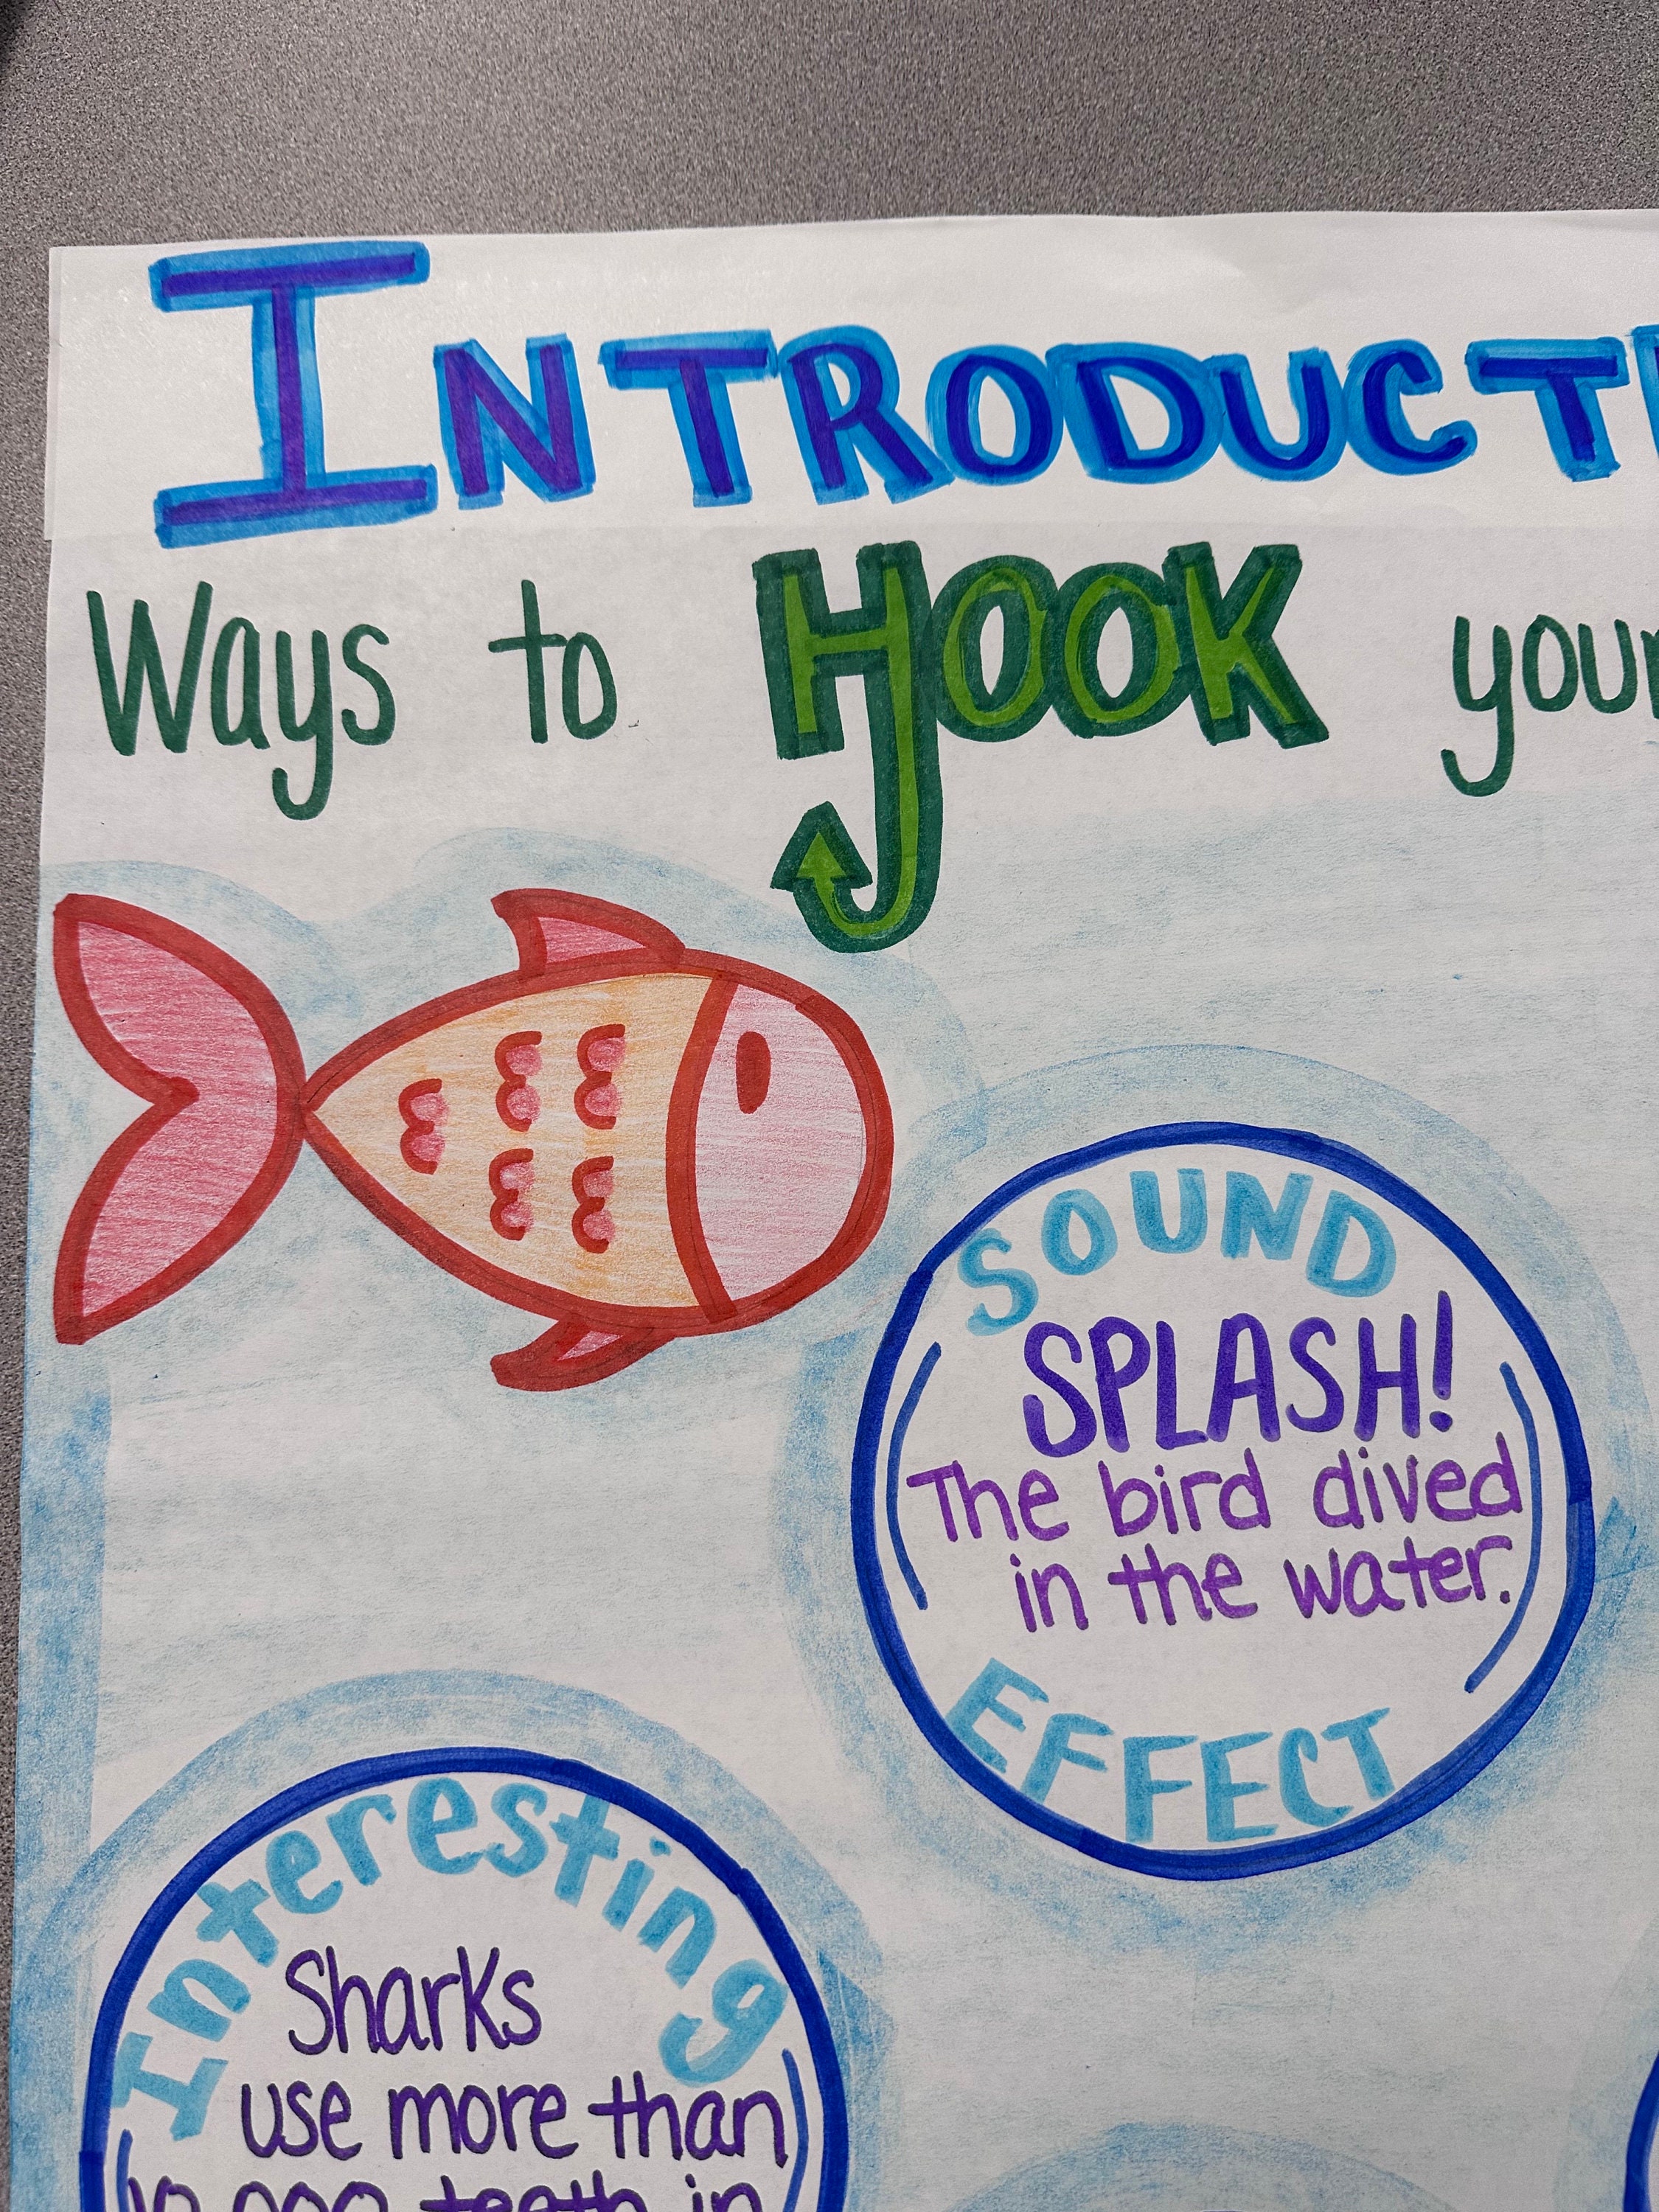 INTRODUCT
Ways to HOOK your
SOUND
SPLASH!
The bird dived
in the water.
EFFECT
Interesting
Sharks
use more than
10,000 teeth in